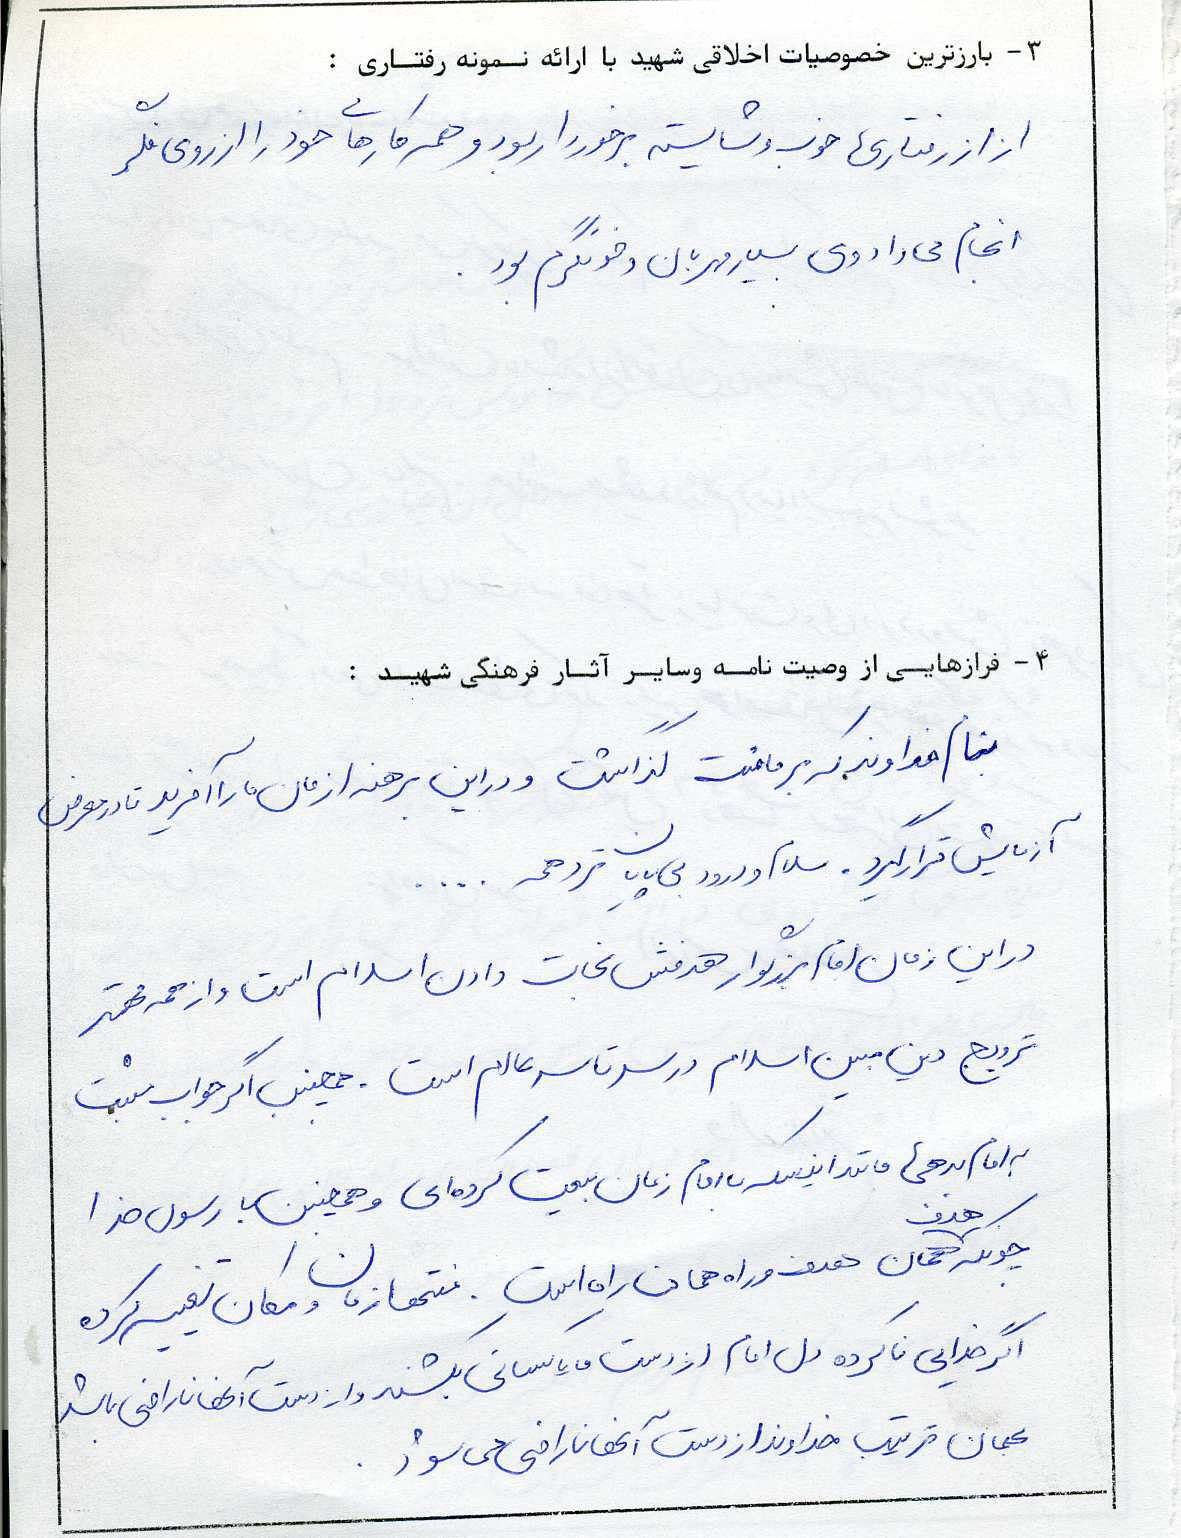 ۳- بارزترین خصوصیات اخلاقی شهید با ارائه نمونه رفتاری :
از از رفتاری خوب و شایسته برخوردار بود و همه کارهای خود را از روی فکر
انجام می داد وی بسیار مهربان و خونگرم بود .
۴- فرازهایی از وصیت نامه وسایر آثار فرهنگی شهید :
بنام خداوند که بر ما منت گذاشت و در این برهه از زمان ما را آفرید تا در معرض
آزمایش قرار گیرد . سلام و درود بی پایان ....
در این زمان امام بزرگوار هدفش نجات دادن اسلام است و از همه مهمتر
ترویج دین مبین اسلام در سرتاسر عالم است . همچنین اگر جواب مثبت
به امام بدهی مانند اینکه با امام زمان بیعت کرده ای و همچنین با رسول خدا
چونکه هدف همان هدف و راه همان راه است . منتها زمان و مکان تغییر کرده
اگر خدایی ناکرده دل امام از دست ما یا کسانی بشکند و از دست آنها ناراضی باشد
بهمان ترتیب خداوند از دست آنها ناراضی می شود .